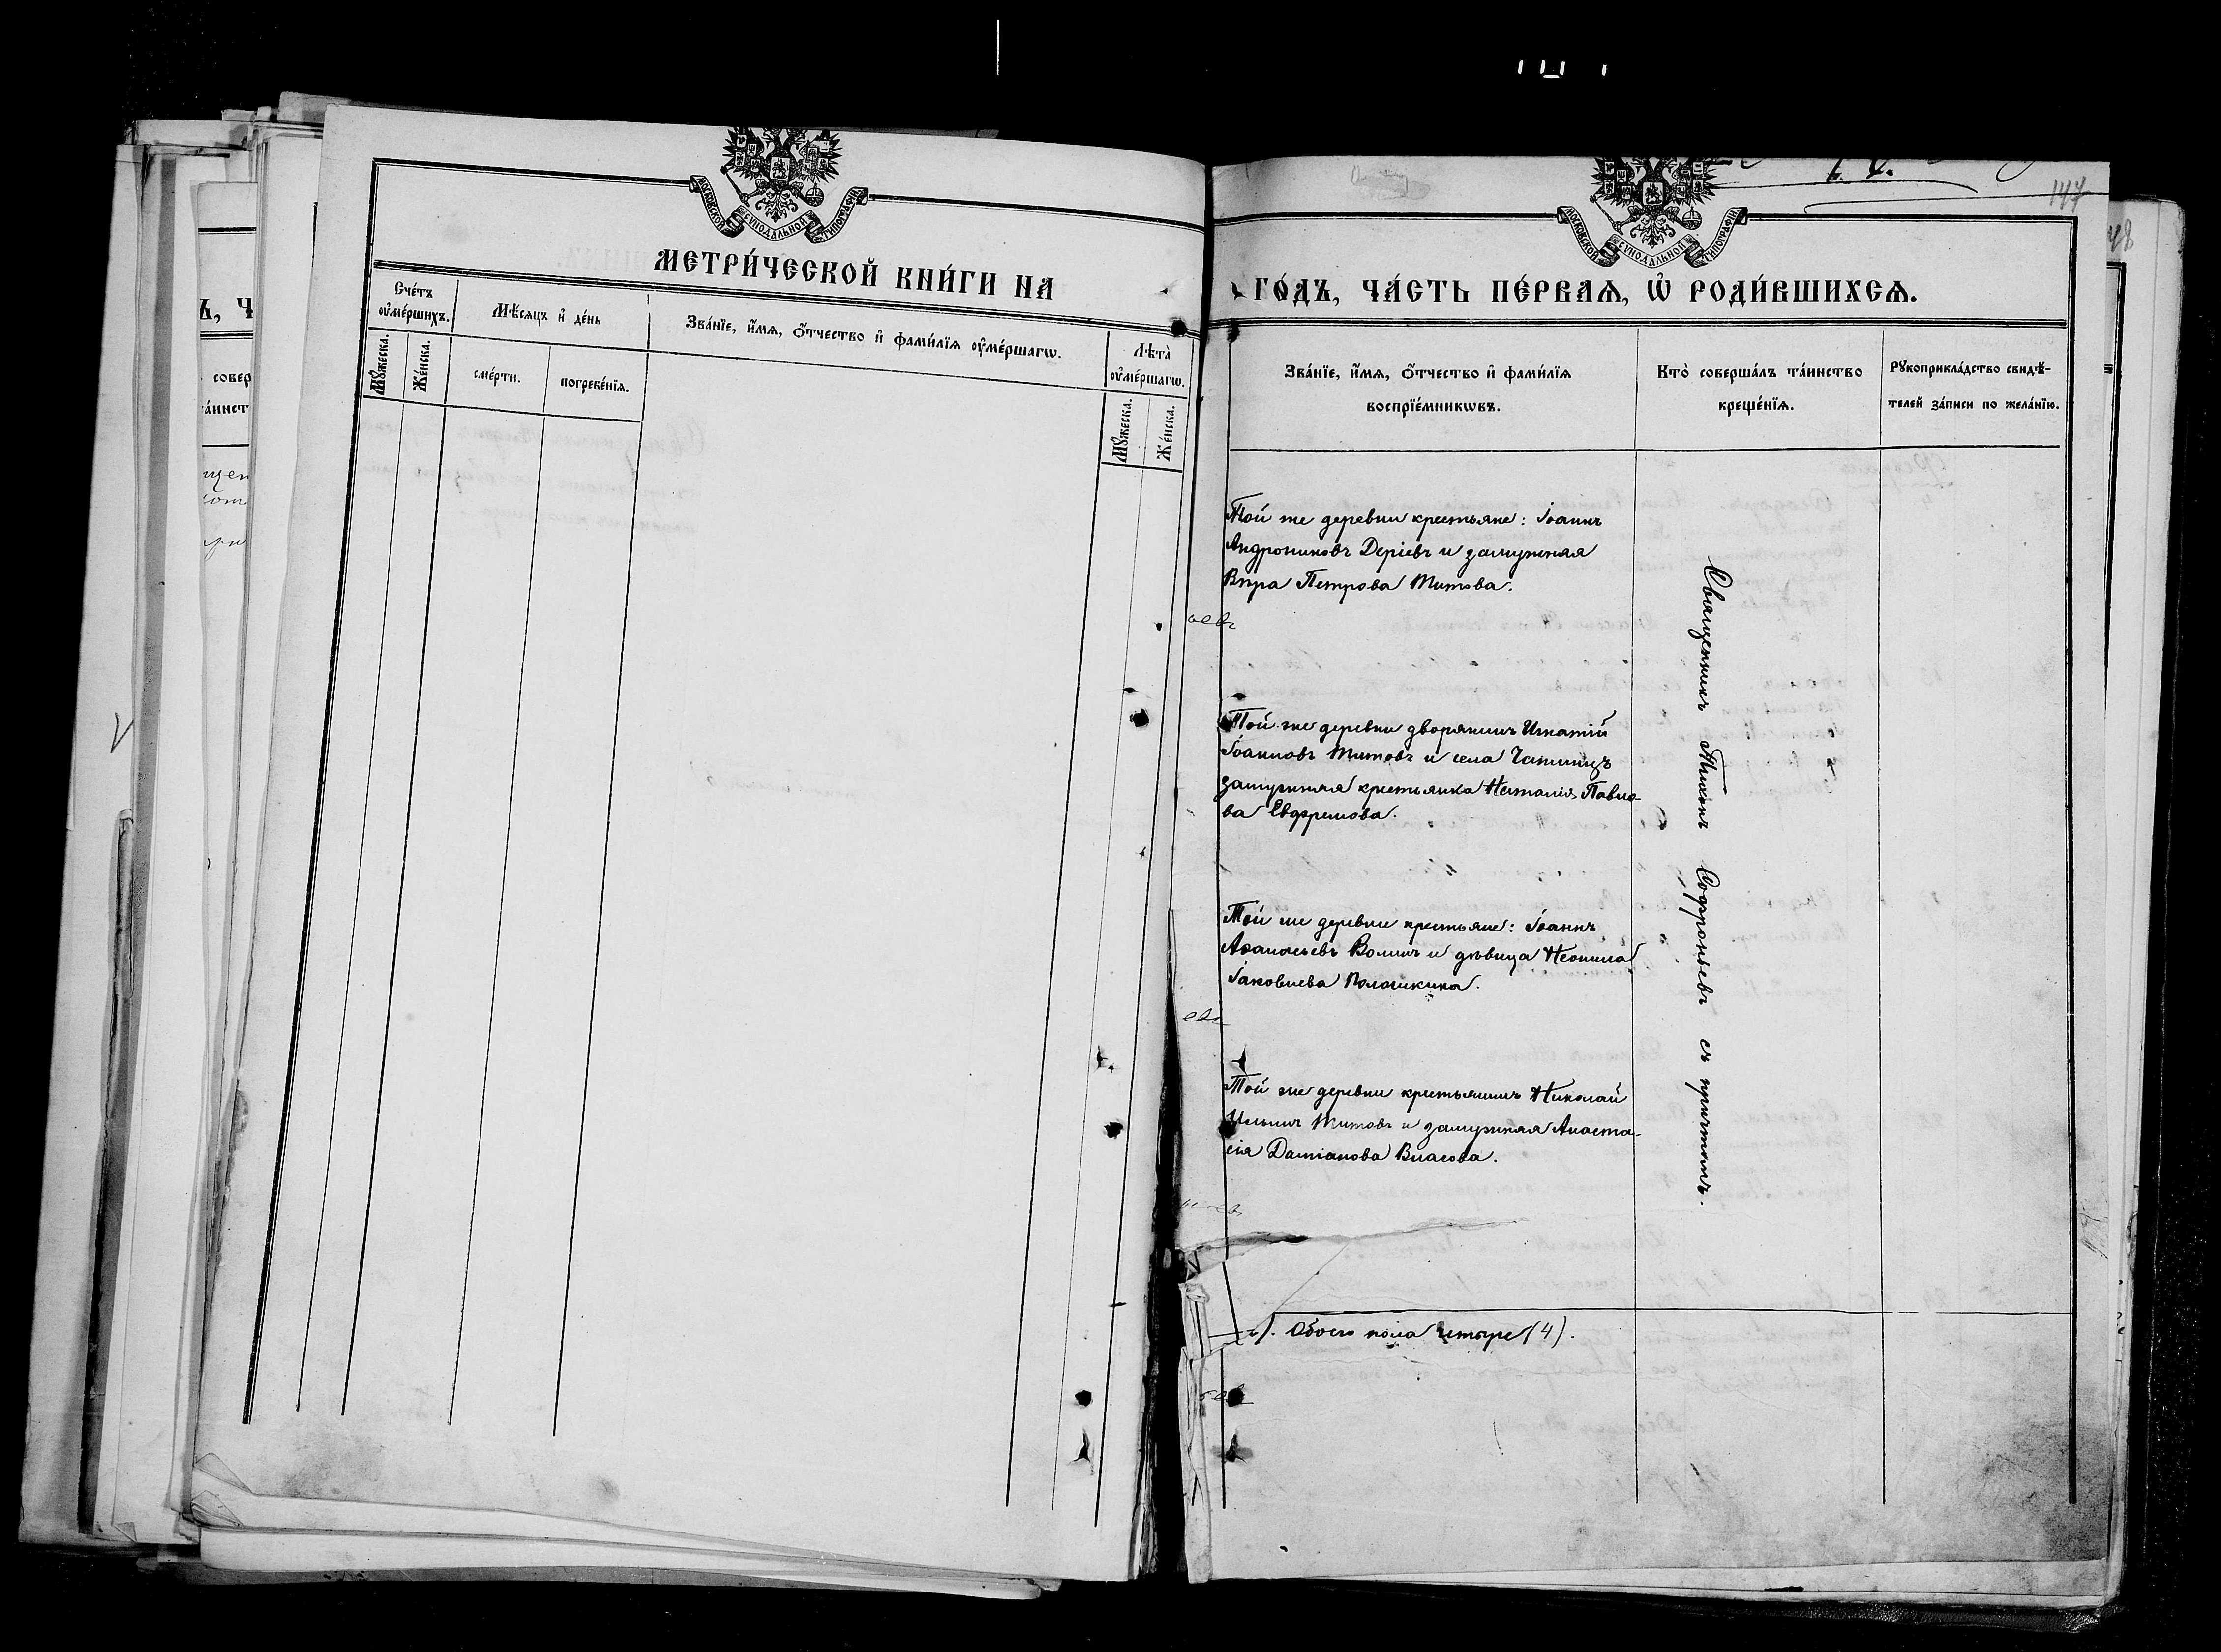 МОСКОВСКОЙ СѴНОДАЛЬНОЙ ТИПОГРАФІИ
МЕТРИ́ЧЕСКОЙ КНИ́ГИ НА
Сче́тъ ᲂу҆ме́ршихъ.
Мѣ́сяцъ и҆ де́нь
Зва́нїе, и҆́мѧ, ѻ҆́тчество и҆ фами́лїѧ ᲂу҆ме́ршагѡ.
Лѣта̀ ᲂу҆ме́ршагѡ.
Мꙋ́жеска.
Же́нска.
сме́рти.
погребе́нїѧ.
Мꙋ́жеска.
Же́нска.
147
МОСКОВСКОЙ СѴНОДАЛЬНОЙ ТИПОГРАФІИ
ГО́ДЪ, ЧА́СТЬ ПЕ́РВАѦ, Ѡ҆ РОДИ́ВШИХСѦ.
Зва́нїе, и҆́мѧ, ѻ҆́тчество и҆ фами́лїѧ
воспрїе́мникѡвъ.
Кто̀ соверша́лъ та́инство
креще́нїѧ.
Рꙋкоприкла́дство свидѣ́-
телей за́писи по жела́нїю.
Той же деревни крестьяне: Іоаннъ
Андрониковъ Деріевъ и замужняя
Вѣра Петрова Титова.
Той же деревни дворянинъ Игнатій
Іоанновъ Титовъ и села
замужняя крестьянка Наталія Павло-
ва Евфремова.
Той же деревни крестьяне: Іоаннъ
Аѳанасьевъ и дѣвица Неонила
Іаковлева
Той же деревни крестьянинъ Николай
Ильинъ Титовъ и замужняя Анаста-
сія Даміанова Власова.
Священникъ Тихонъ Софроньевъ съ причтомъ.
Обоего пола четыре (4).